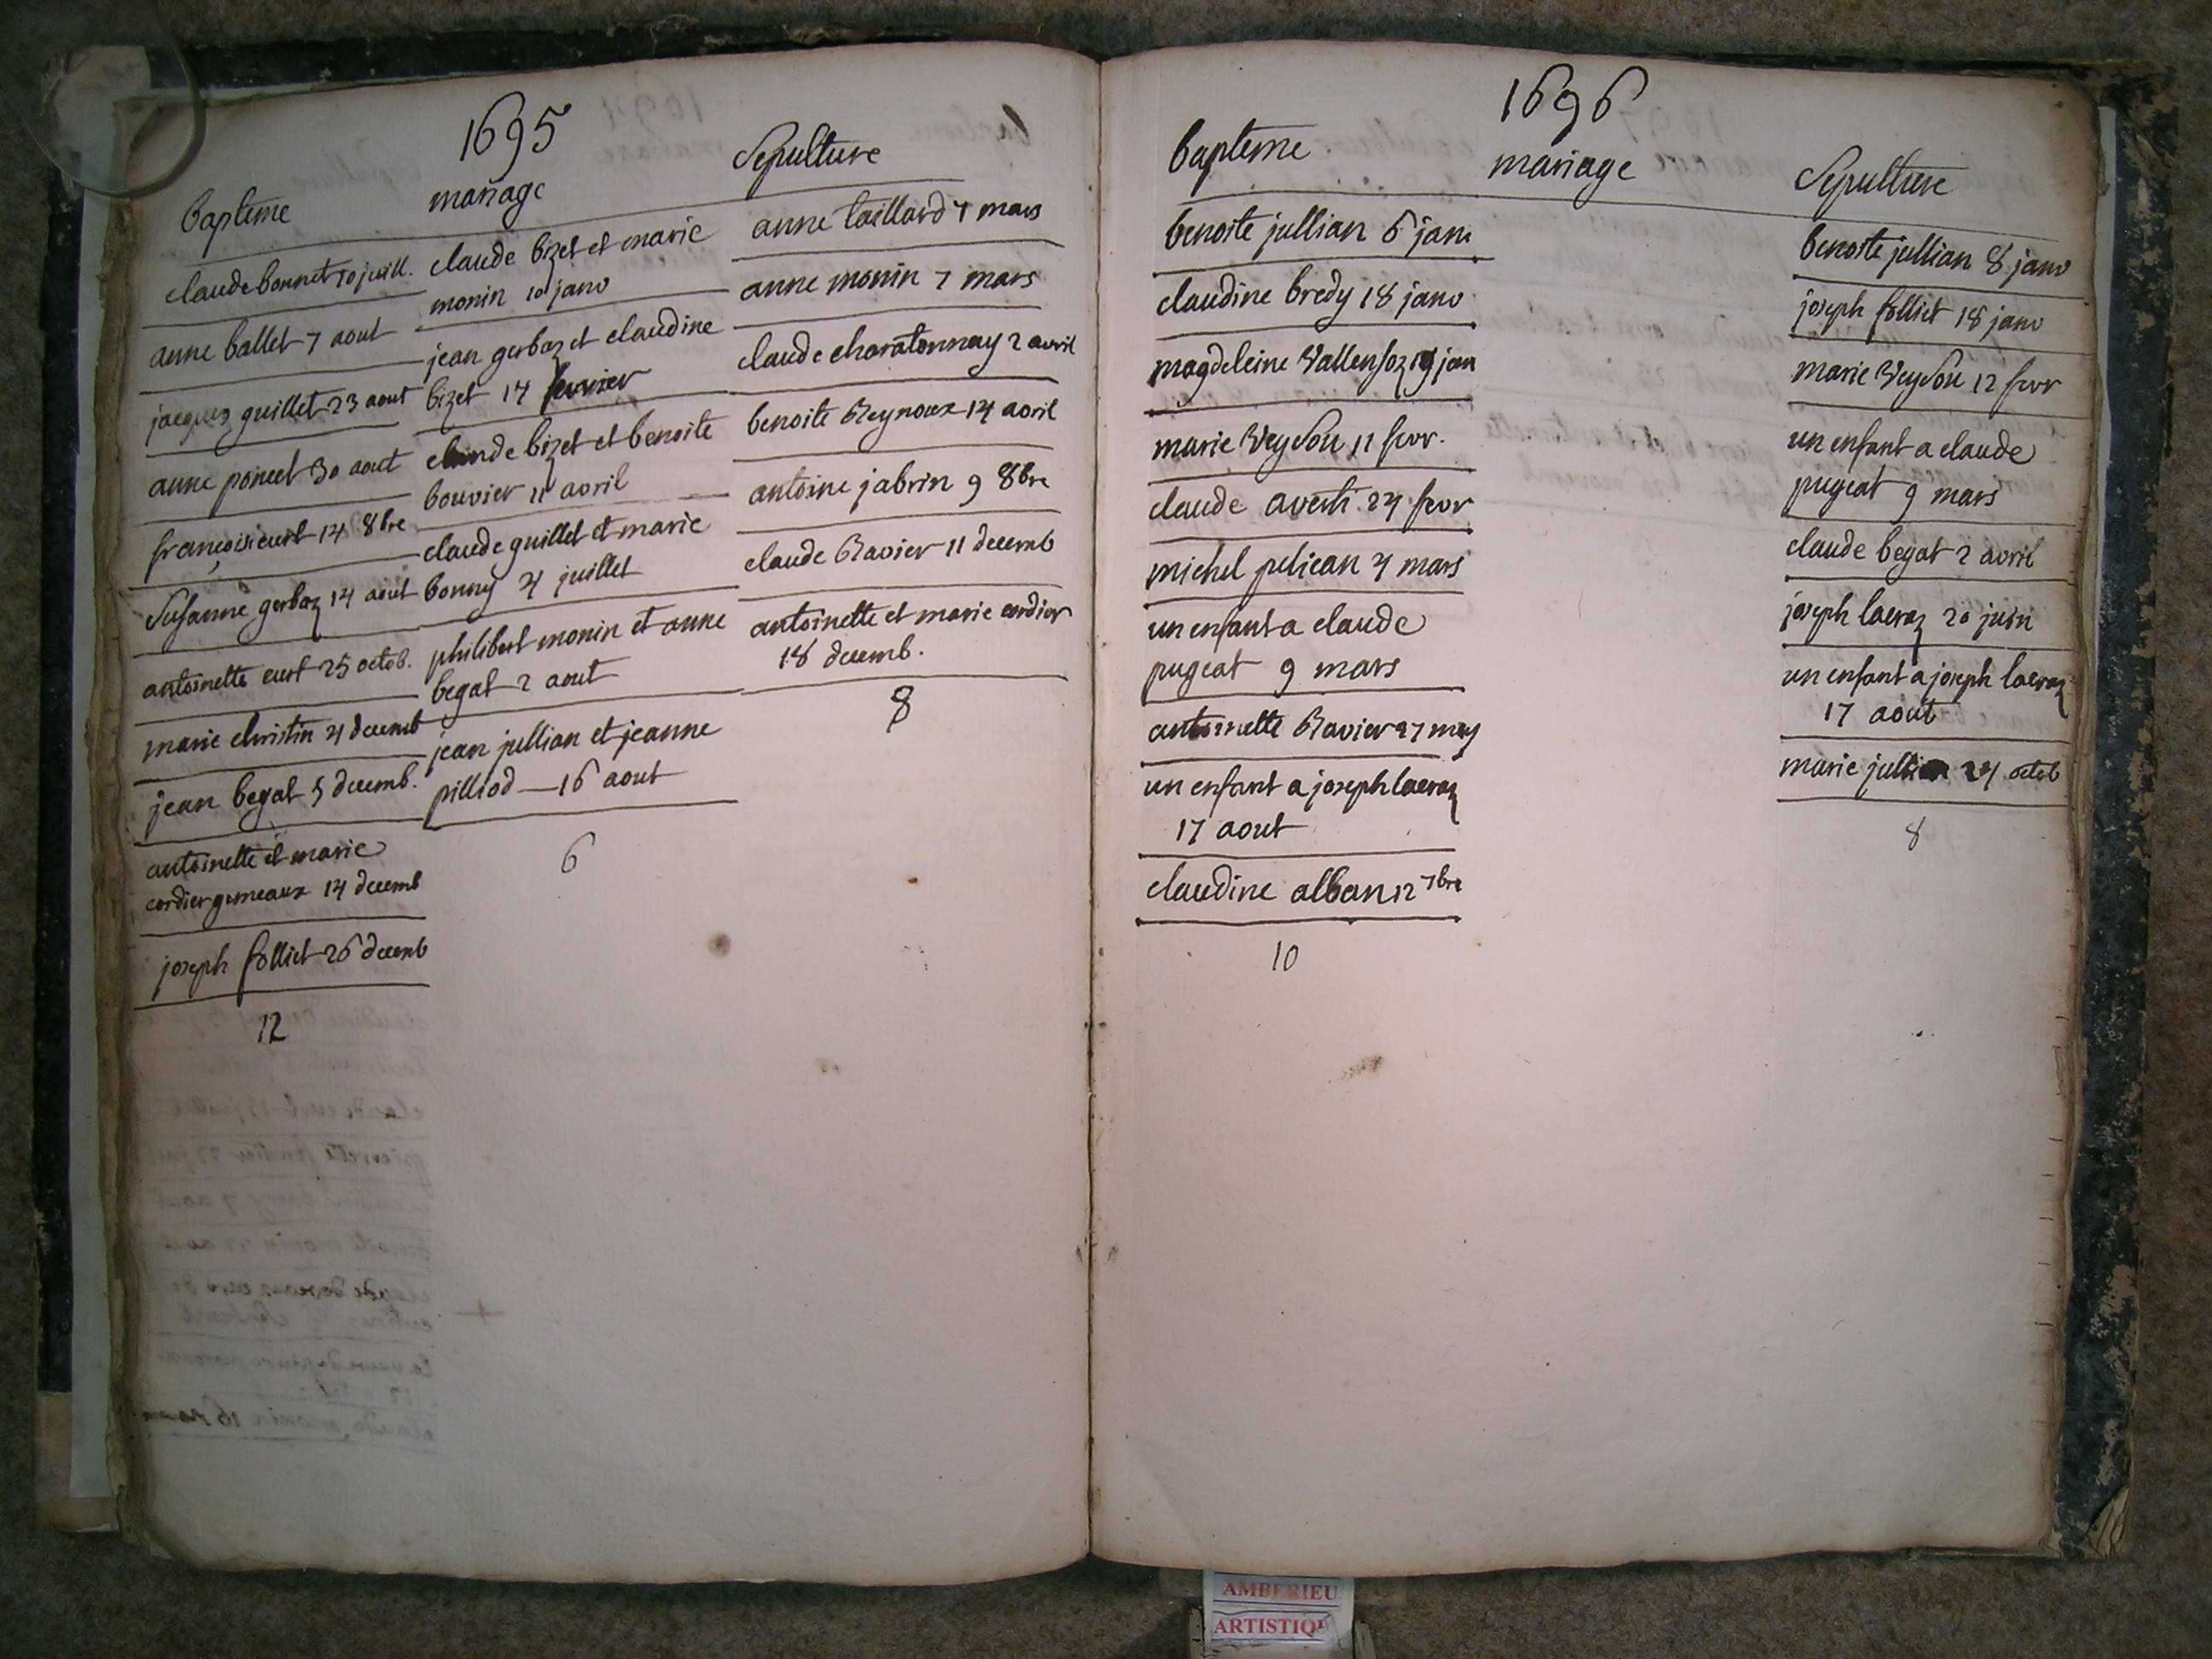 1695
bapteme
claude bonnet 10 juill.
anne ballet 7 aout
jacques guillet 23 aout
anne poncet 30 aout
francois curt 14 8bre
Susanne gerbaz 14 aout
antoinette curt 25 octob.
marie christin 4 decemb
jean begat 5 decemb.
antoinette et marie
cordier gemeaux 14 decemb
joseph folliet 26 decemb
12
mariage
claude bizet et marie
monin 10 janv
jean gerbaz et claudine
bizet 14 fevrier
claude bizet et benoite
bouvier 11 avril
claude guillet et marie
bonny 4 juillet
philibert monin et anne
begat 2 aout
jean jullian et jeanne
pilliod 16 aout
6
Sepulture
anne taillard 7 mars
anne monin 7 mars
claude charatonnay 2 avril
benoite Reynoux 14 avril
antoine jabrin 9 8bre
claude Ravier 11 decemb
antoinette et marie cordier
18 decemb.
8
1696
bapteme
benoite jullian 6 janv
claudine bredy 18 janv
magdeleine Vallensoz 19 jan
marie Veydou 11 fevr.
claude averti 24 fevr
michel pelican 4 mars
un enfant a claude
pugeat 9 mars
antoinette Ravier 27 may
un enfant a joseph lacraz
17 aout
claudine alban 12 7bre
10
mariage
Sepulture
benoite jullian 8 janv
joseph folliet 18 janv
marie Veydou 12 fevr
un enfant a claude
pugeat 9 mars
claude begat 2 avril
joseph lacraz 20 juin
un enfant a joseph lacraz
17 aout
marie jullian 24 octob
8
AMBERIEU
ARTISTIQ